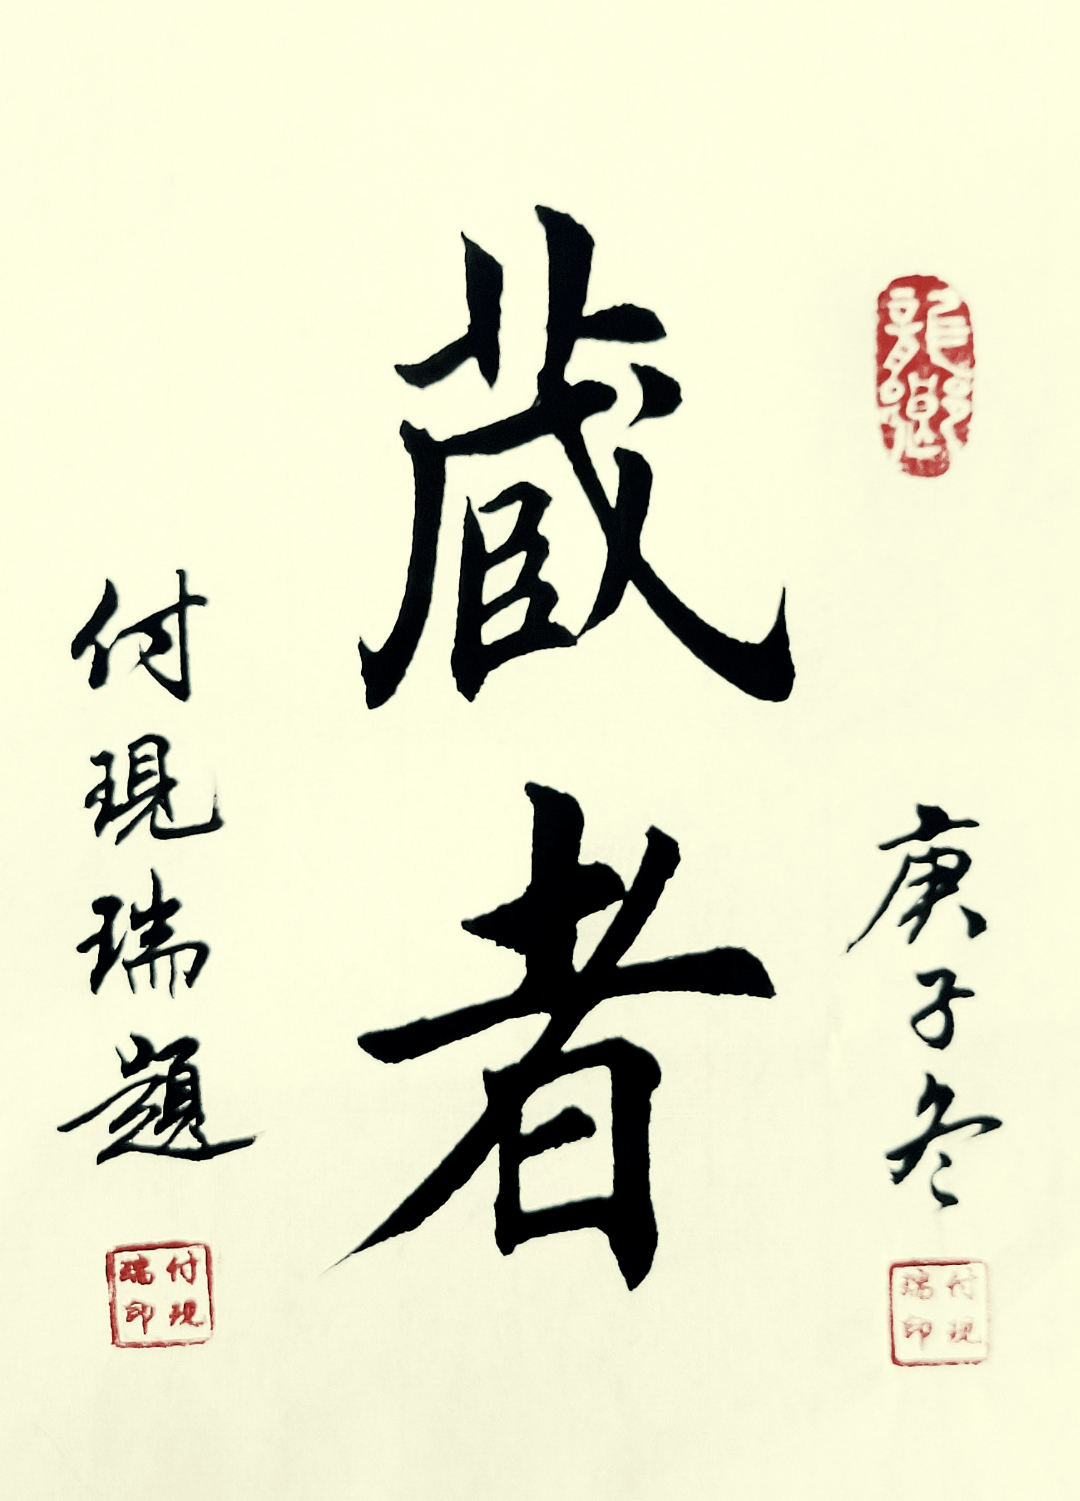 庚子冬
付現瑞印
蔵者
付現瑞題
付現瑞印